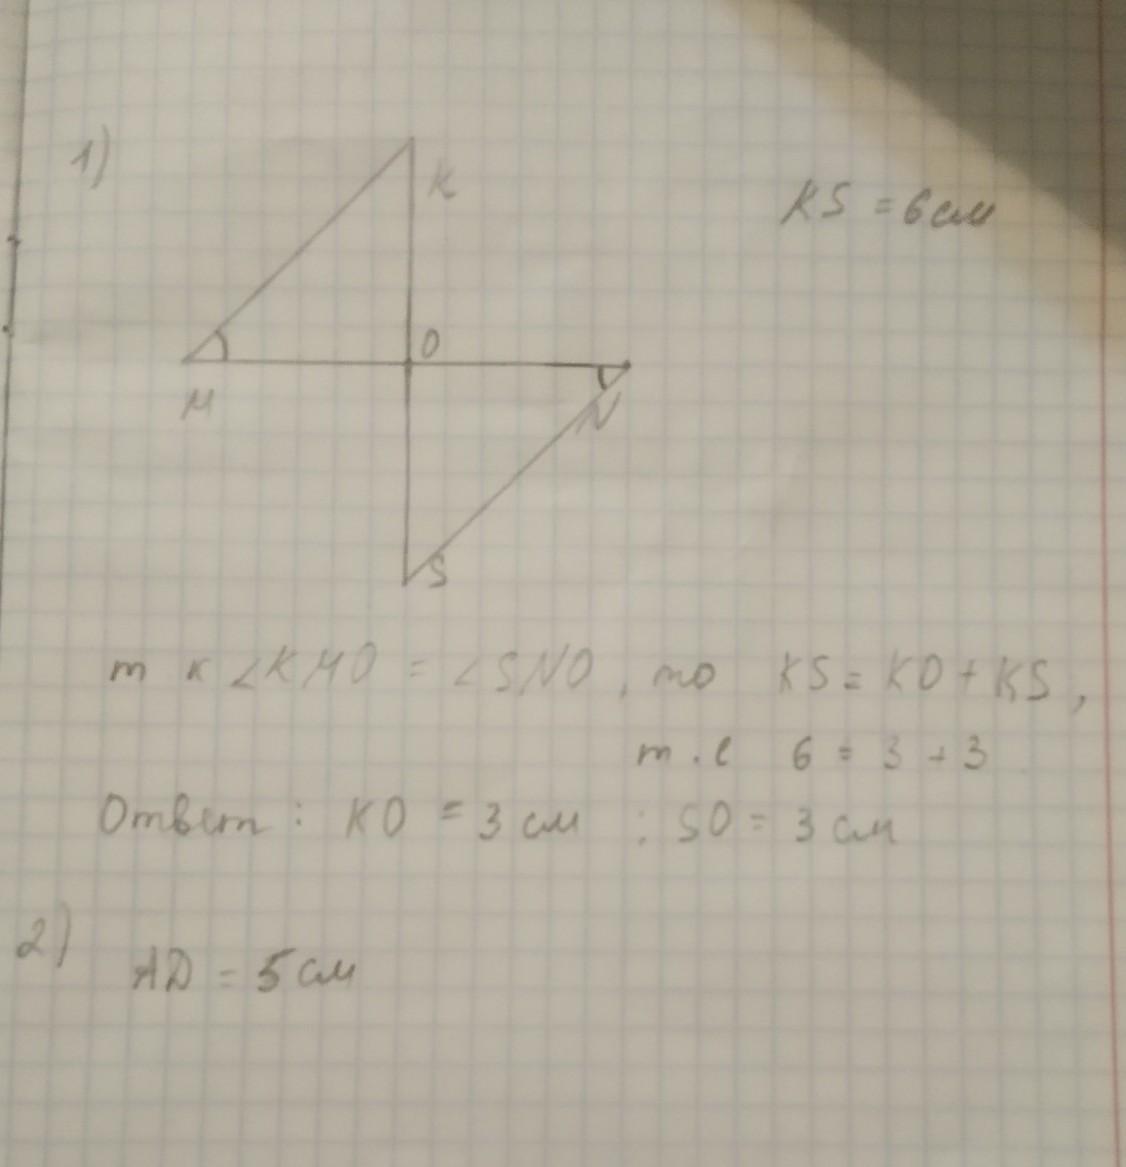 1)
K
KS = 6 см
O
M
N
S
т к ∠KMO = ∠SNO, то KS = KO + KS,
т.е 6 = 3 + 3
Ответ: KO = 3 см ; SO = 3 см
2)
AD = 5 см